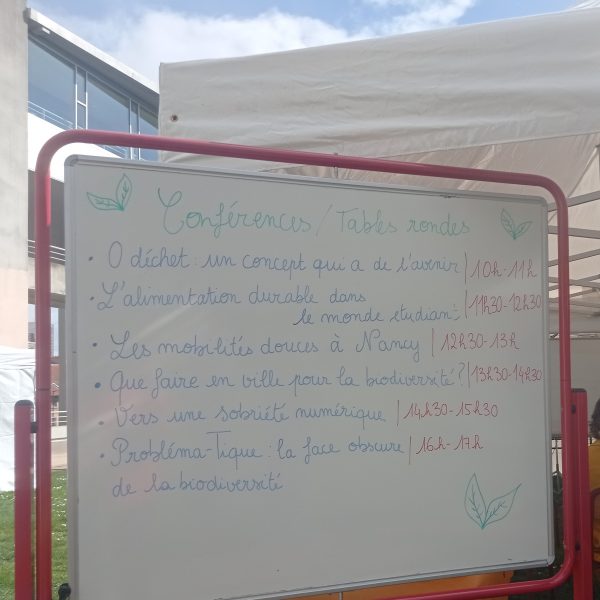 Conférences / Tables rondes
• O déchet : un concept qui a de l'avenir | 10h-11h
• L'alimentation durable dans
le monde etudiant | 11h30-12h30
• Les mobilités douces à Nancy | 12h30-13h
• Que faire en ville pour la biodiversité ? | 13h30-14h30
• Vers une sobriété numérique | 14h30-15h30
• Probléma-Tique : la face obscure | 16h-17h
de la biodiversité